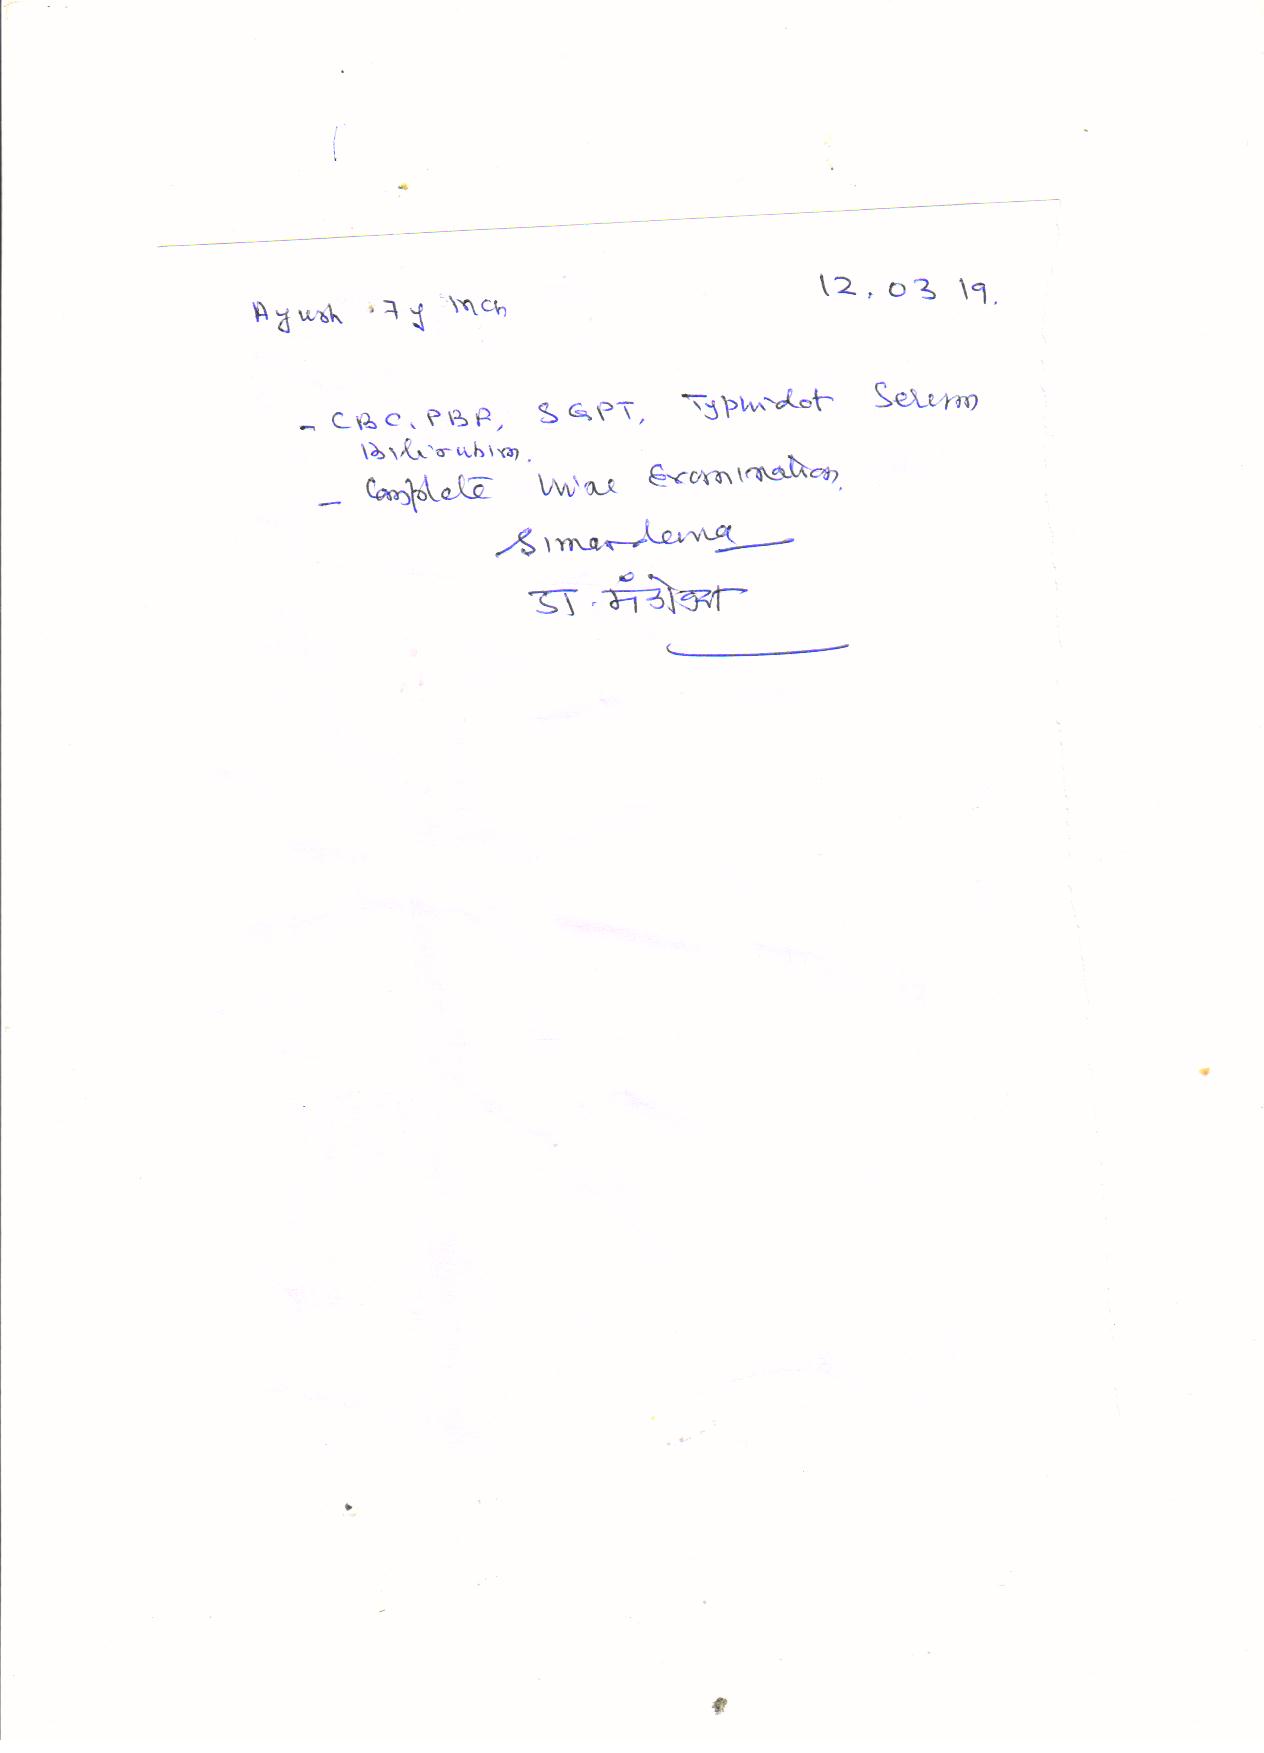 12.03 19.
Ayush .7y mch
- CBC, PBF, SGPT, Typhidot Serum
Bilirubin.
- Complete Urine Examination.
डा.